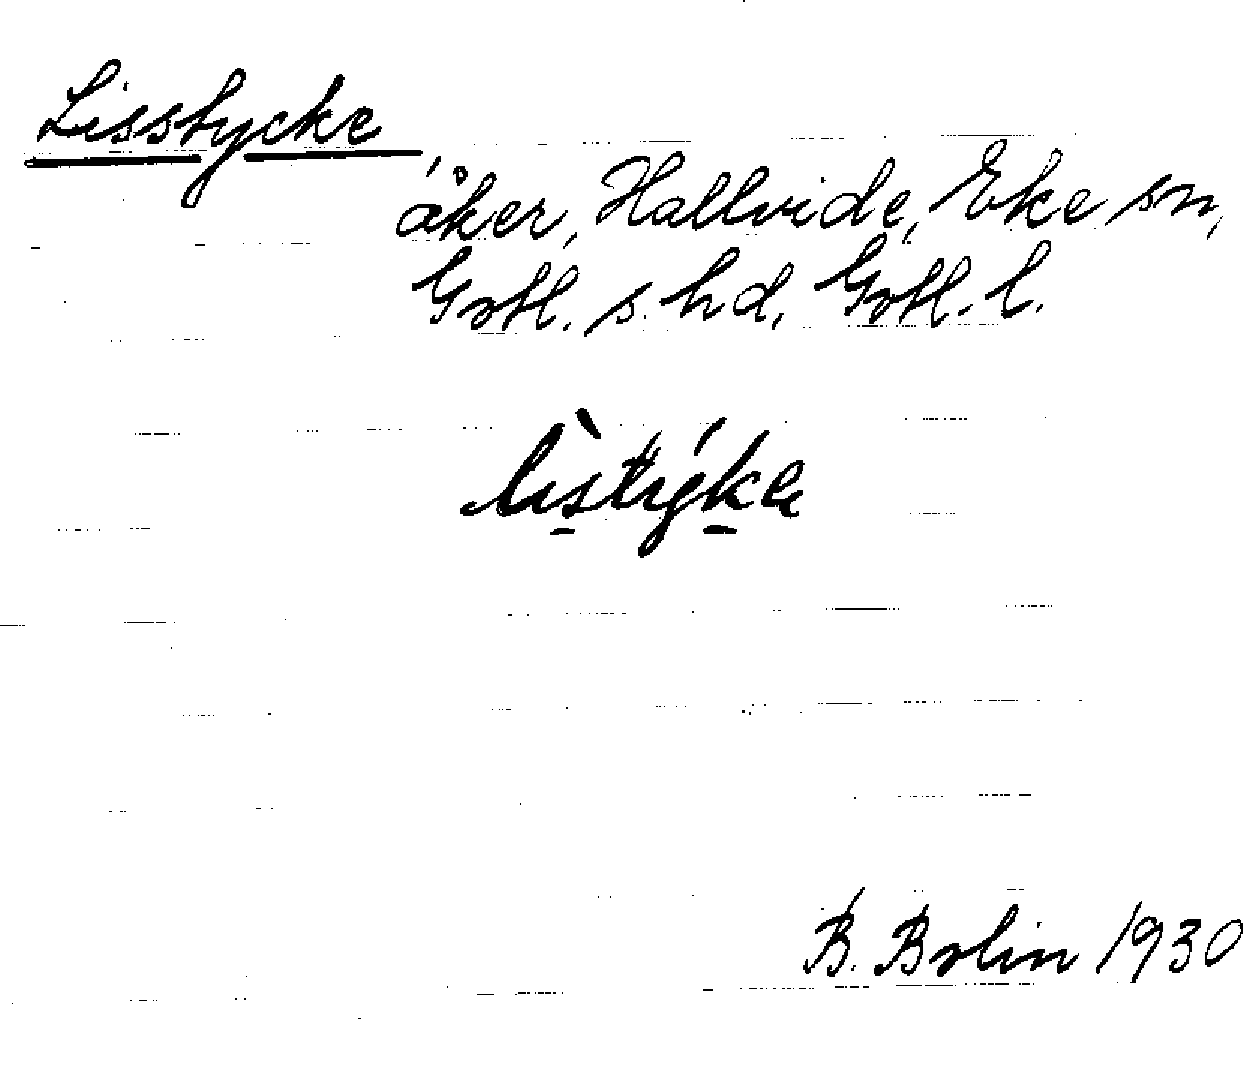 Lisstycke,
åker, Hallvide, Eke sn,
Gotl. s. hd, Gotl. l.
lìstýke
B. Bolin 1930